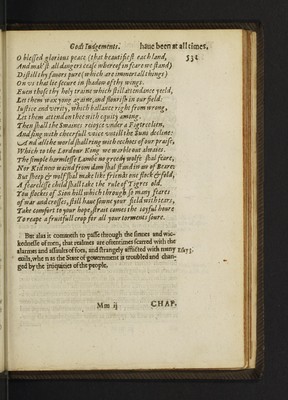 Gods Iudgements. haue been at all times.
532
O blessed glorious peace (that beautifiest each land,
And mak'st all dangers cease whereof in feare we stand)
Distill thy fauors pure (which are immortall things)
On vs that lie secure in shadow of thy wings.
Euen those thy holy traine which still attendance yeeld,
Let them wax yong againe, and flourish in our field:
Iustice and verity, which ballance right from wrong,
Let them attend on thee with equity among.
Then shall the Swaines reioyce vnder a Figtree lien,
And sing with cheerfull voice vntill the Suns decline:
And all the world shall ring with ecchoes of our praise,
Which to the Lord our King we warble out alwaies.
The simple harmlesse Lambe no greedy wolfe shal feare,
Nor Kid new waind from dam shal stand in aw of Beare:
But sheep & wolf shal make like friends one flock & fold,
A fearelesse child shall take the rule of Tigres old.
You flockes of Sion hill which through so many feares
of war and crosses, still haue sowne your field with tears,
Take comfort to your hope, strait comes the ioyful houre
To reape a fruitfull crop for all your torments soure.
But alas it commeth to passe through the sinnes and wic-
kednesse of men, that realmes are oftentimes scarred with the
alarums and assaults of foes, and strangely afflicted with many
euils, whe n as the State of gouernment is troubled and chan-
ged by the iniquities of the people.
Mm ij CHAP.